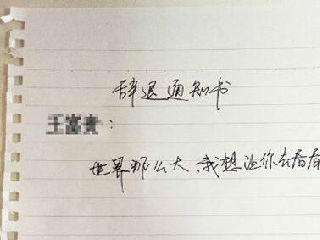 辞退通知书
世界那么大，我想让你去看看